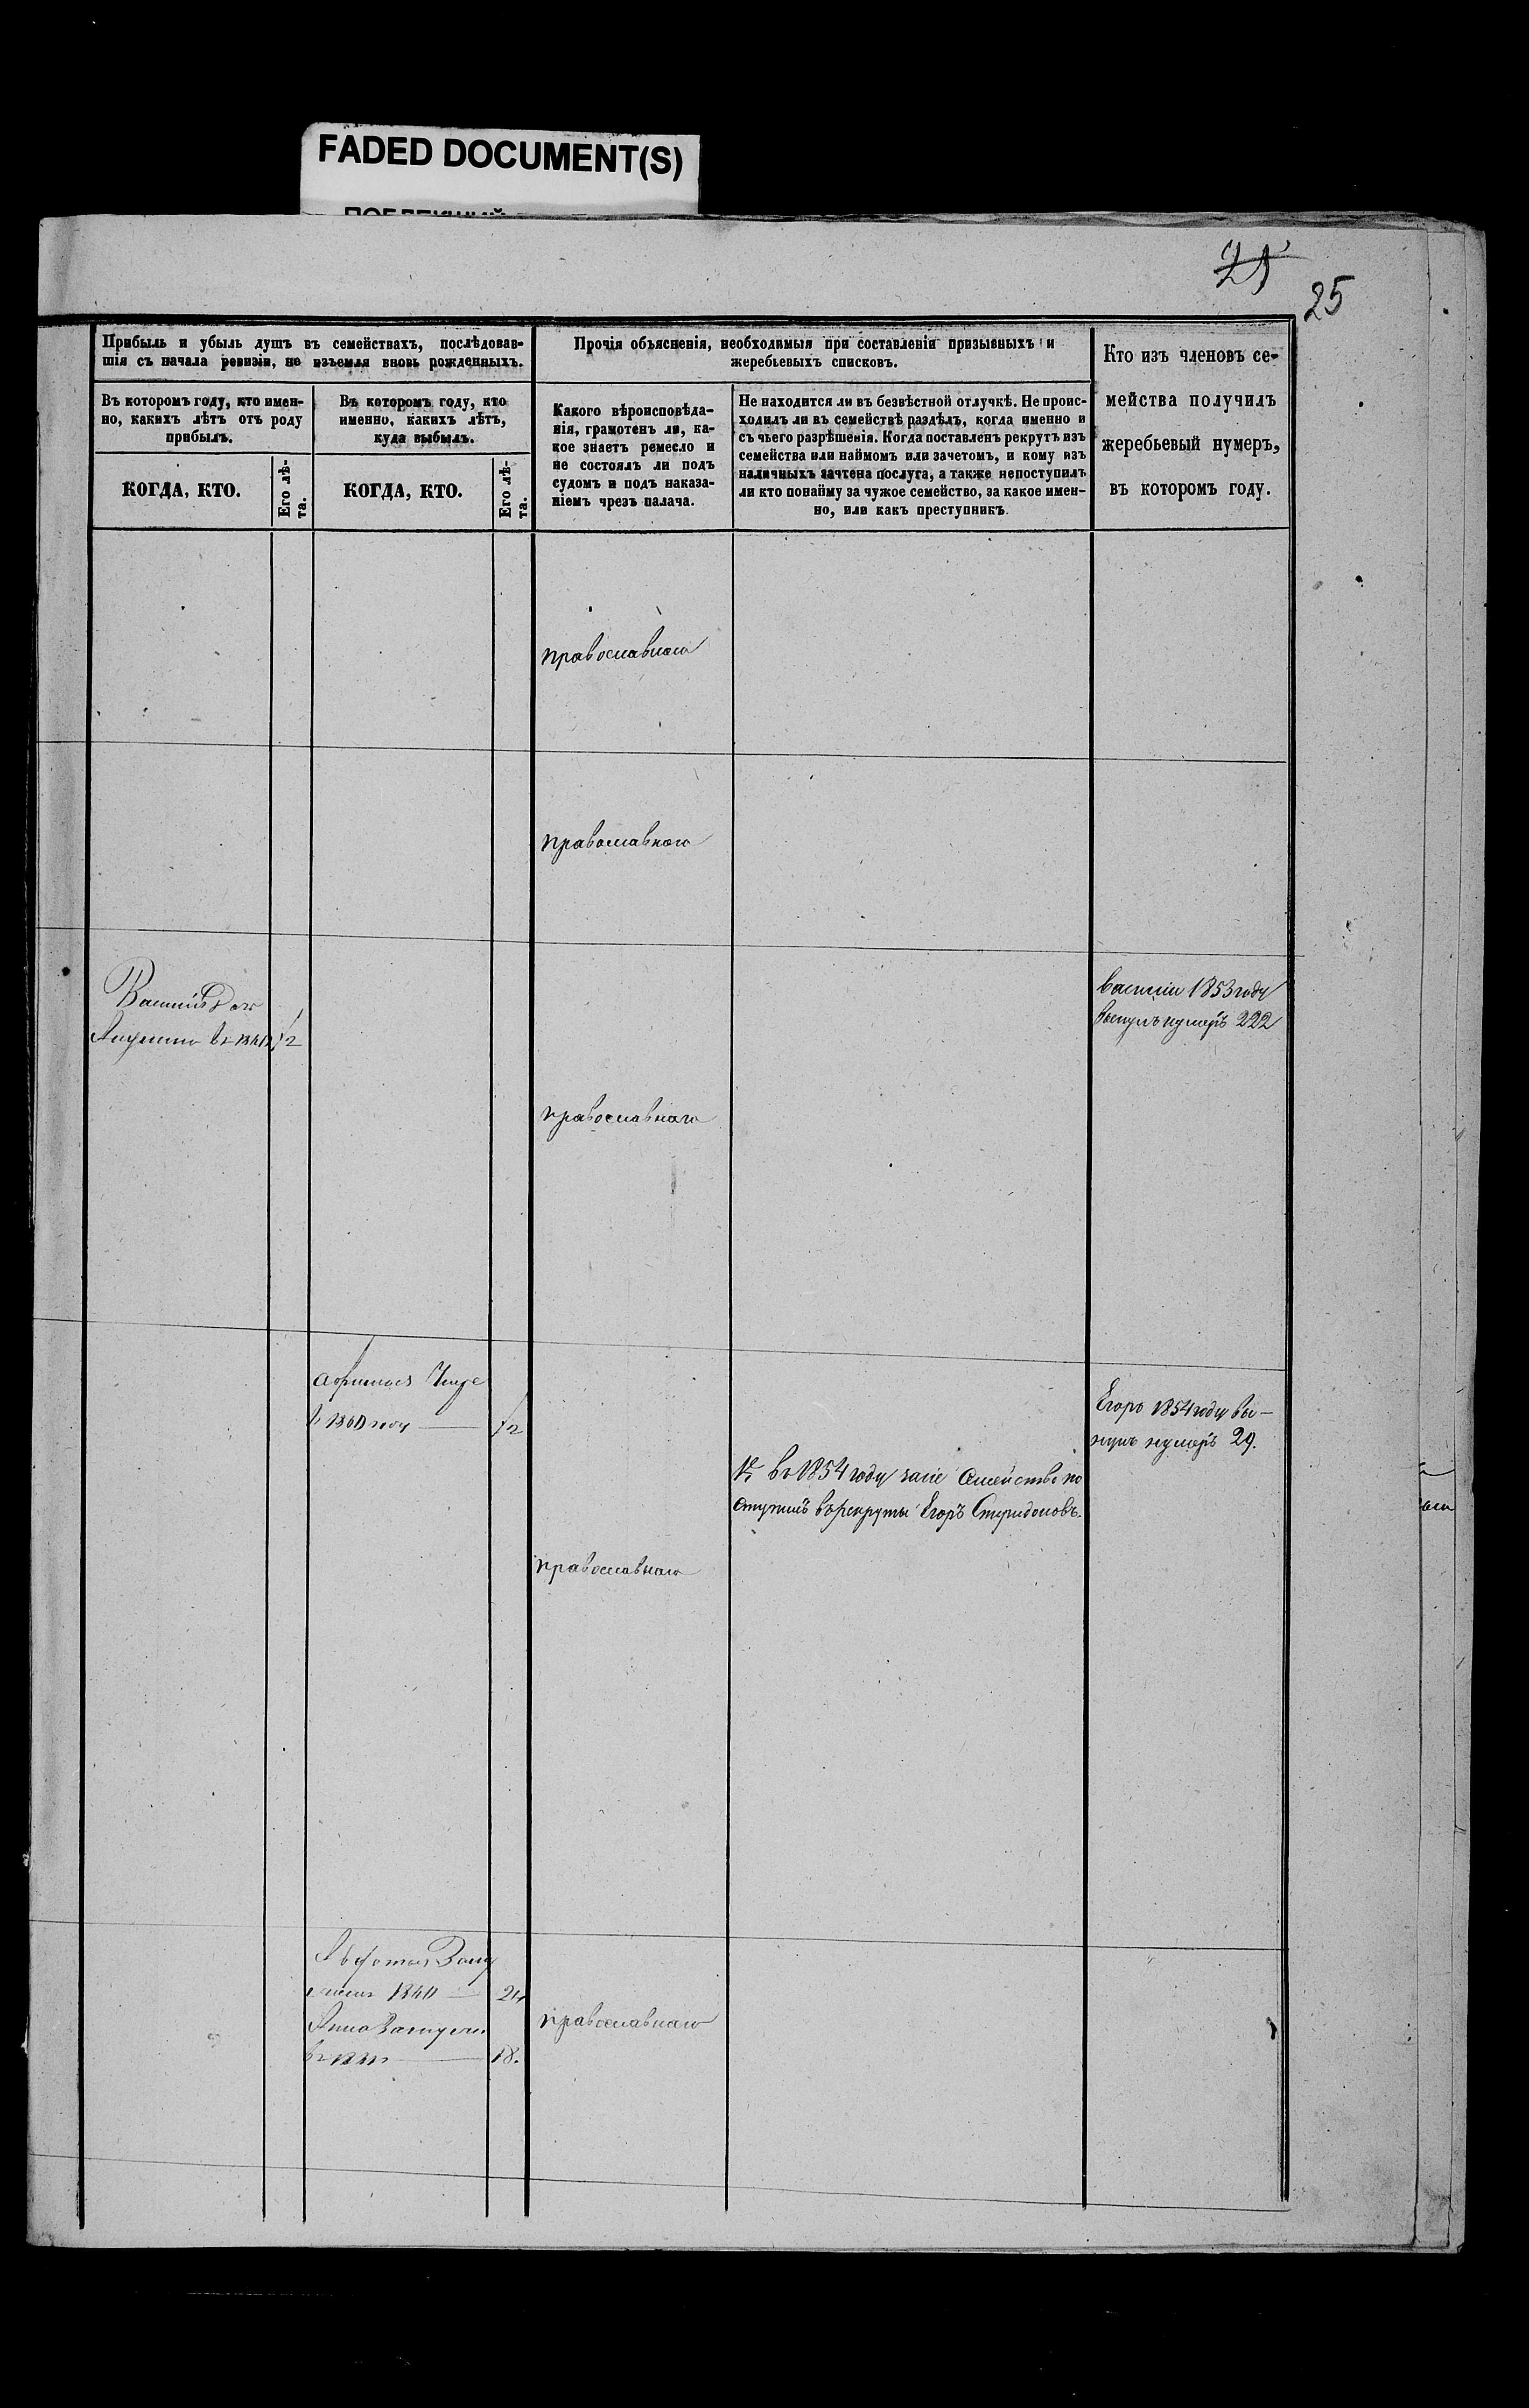 FADED DOCUMENT(S)
25
25
Прибыль и убыль душъ въ семействахъ, послѣдовав-
шія съ начала ревизіи, не изъемля вновь рожденныхъ.
Прочія объясненія, необходимыя при составленіи призывныхъ и
жеребьевыхъ списковъ.
Кто изъ членовъ се-
мейства получилъ
жеребьевый нумеръ,
въ которомъ году.
Въ которомъ году, кто имен-
но, какихъ лѣтъ отъ роду
прибылъ.
Въ которомъ году, кто
именно, какихъ лѣтъ,
куда выбылъ.
Какого вѣроисповѣда-
нія, грамотенъ ли, ка-
кое знаетъ ремесло и
не состоялъ ли подъ
судомъ и подъ наказа-
ніемъ чрезъ палача.
Не находится ли въ безвѣстной отлучкѣ. Не проис-
ходилъ ли въ семействѣ раздѣлъ, когда именно и
съ чьего разрѣшенія. Когда поставленъ рекрутъ изъ
семейства или наймомъ или зачетомъ, и кому изъ
наличныхъ зачтена послуга, а также непоступилъ
ли кто понайму за чужое семейство, за какое имен-
но, или какъ преступникъ.
КОГДА, КТО.
Его лѣ-
та.
КОГДА, КТО.
Его лѣ-
та.
православнаго
православнаго
василии 1853 году
вынулъ нумеръ 222
православнаго
Егоръ 1854 году вы-
нулъ нумеръ 29.
въ 1854 году Семейство по
ступилъ въ рекруты Егоръ Спиридоновъ.
православнаго
24
православнаго
18.